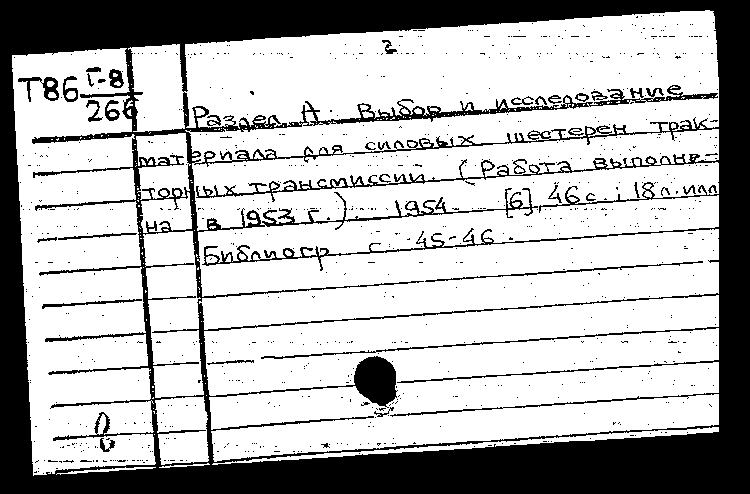 2
Т86 Г-8
266
Раздел А. Выбор и исследование
материала для силовых шестерен трак-
торных трансмиссий. (Работа выполне-
на в 1953 г.). 1954. [6], 46 с.; 18 л. илл
Библиогр. с. 45-46.